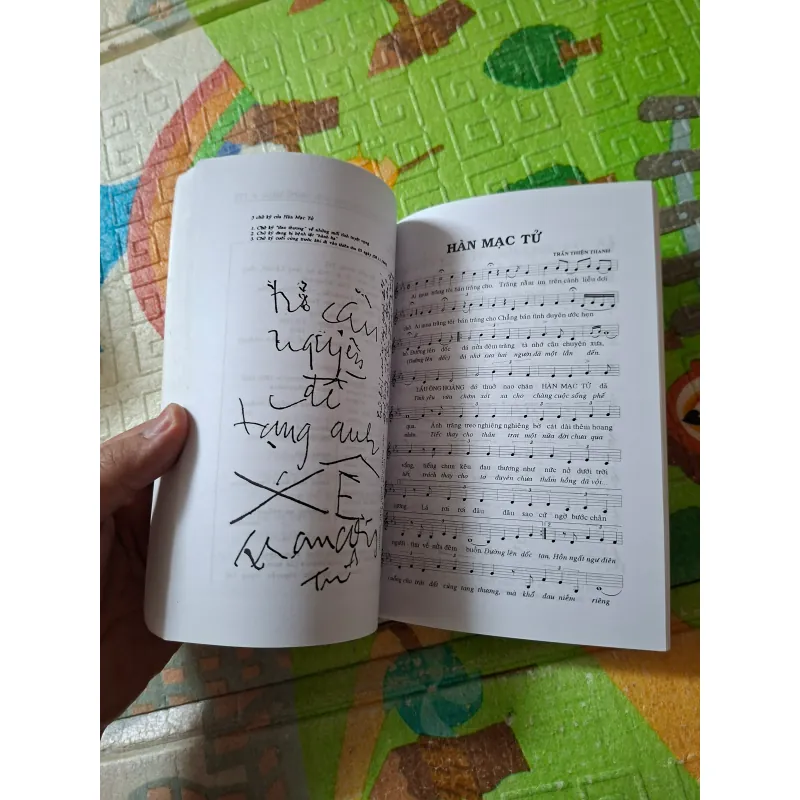 3 chữ ký của Hàn Mạc Tử
1. Chữ ký "đau thương" về những mối tình tuyệt vọng
2. Chữ ký đang bị bệnh tật "hành hạ"
3. Chữ ký cuối cùng trước khi đi vào thiên thu
cần
nguyện
để
tặng anh
XÊ
HÀN MẠC TỬ
TRẦN THIỆN THANH
Ai mua trăng tôi bán trăng cho. Trăng nằm im trên cành liễu đợi
chờ. Ai mua trăng tôi bán trăng cho Chẳng bán tình duyên ước hẹn
hò. Đường lên dốc đá nửa đêm trăng tà nhớ câu chuyện xưa.
(Đường lên dốc) đá nhớ xưa hai người đã một lần đến.
LẦU ÔNG HOÀNG đó thuở nao chân HÀN MẠC TỬ đã
Tình yêu vừa chớm xót xa cho chàng cuộc sống phế
qua. Ánh trăng treo nghiêng nghiêng bờ cát dài thêm hoang
nhân. Tiếc thay cho thân trai một nửa đời chưa qua
vắng, tiếng chim kêu đau thương như nức nở dưới trời
hết trách thay cho tơ duyên chưa thắm hồng đã vội...
sương. Lá rơi rơi đâu đâu sao cứ ngỡ bước chân
người tìm về nửa đêm buồn. Đường lên dốc tan. Hồn ngất ngư điên
cuồng cho trời đất cùng tang thương, mà khổ đau niềm riêng